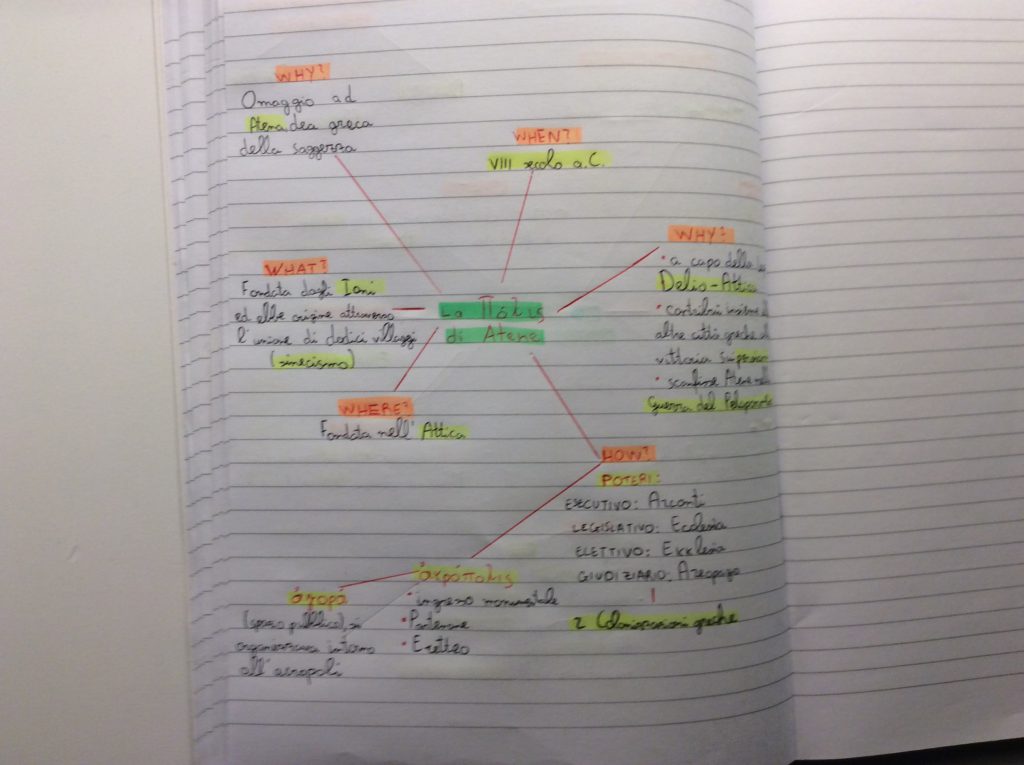 WHY?
Omaggio ad
Atena dea greca
della saggezza
WHEN?
VIII secolo a.C.
WHY?
• a capo della
Delio-Attica
• contribuì insieme
altre città greche
vittoria sui
• sconfisse Atene
Guerra del
WHAT?
Fondata dagli Ioni
ed ebbe origine attraverso
l'unione di dodici villaggi
(sinecismo)
La Πόλις
di Atene
WHERE?
Fondata nell'Attica
HOW?
POTERI:
ESECUTIVO: Arconti
LEGISLATIVO: Ecclesia
ELETTIVO: Ekklesia
GIUDIZIARIO: Areopago
2 Colonizzazioni greche
ἀκρόπολις
• ingresso monumentale
• Partenone
• Eretteo
ἀγορά
(spazio pubblico), si
organizzava intorno
all'acropoli